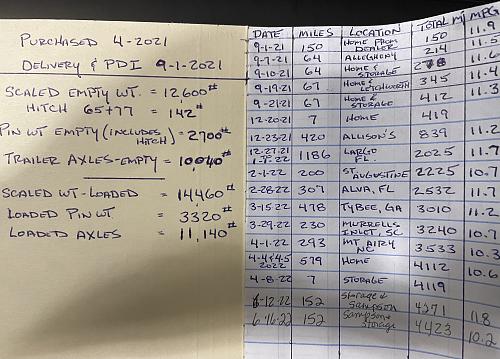 PURCHASED 4-2021
DELIVERY & PDI 9-1-2021
SCALED EMPTY WT. = 12,600#
HITCH 65+77 = 142#
PIN WT EMPTY (INCLUDES HITCH) = 2700#
TRAILER AXLES-EMPTY = 10,040#
SCALED WT-LOADED = 14460#
LOADED PIN WT = 3320#
LOADED AXLES = 11,140#
DATE MILES LOCATION TOTAL MI MPG
9-1-21 150 HOME FROM DEALER 150 11.9
9-7-21 64 ALLEGHENY 214 11.5
9-10-21 64 HOME & STORAGE 278 11.6
9-19-21 67 HOME & LETCHWORTH 345 11.4
9-21-21 67 HOME & STORAGE 412 11.3
12-20-21 7 HOME 419
12-23-21 420 ALLISON'S 839 11.2
12-27-21 1-8-22 1186 LARGO FL. 2025 11.7
2-1-22 200 ST. AUGUSTINE 2225 10.7
2-28-22 307 ALVA, FL 2532 11.7
3-15-22 478 TYBEE, GA 3010 11.2
3-29-22 230 MURRELLS INLET, SC 3240 10.7
4-1-22 293 MT. AIRY NC 3533 10.3
4-4&4-5 2022 579 HOME 4112 10.6
4-8-22 7 STORAGE 4119
6-12-22 152 Storage & Sampson 4271 11.8
6-16-22 152 Sampson & Storage 4423 10.2